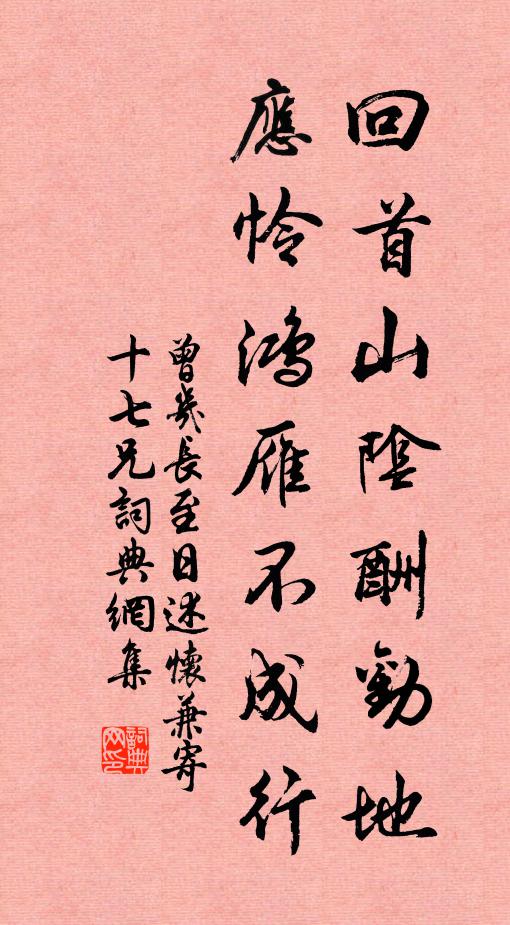 回首山陰酬勸地
應憐鴻雁不成行
曾幾長至日述懷兼寄
十七兄詞典網集
詞典網印